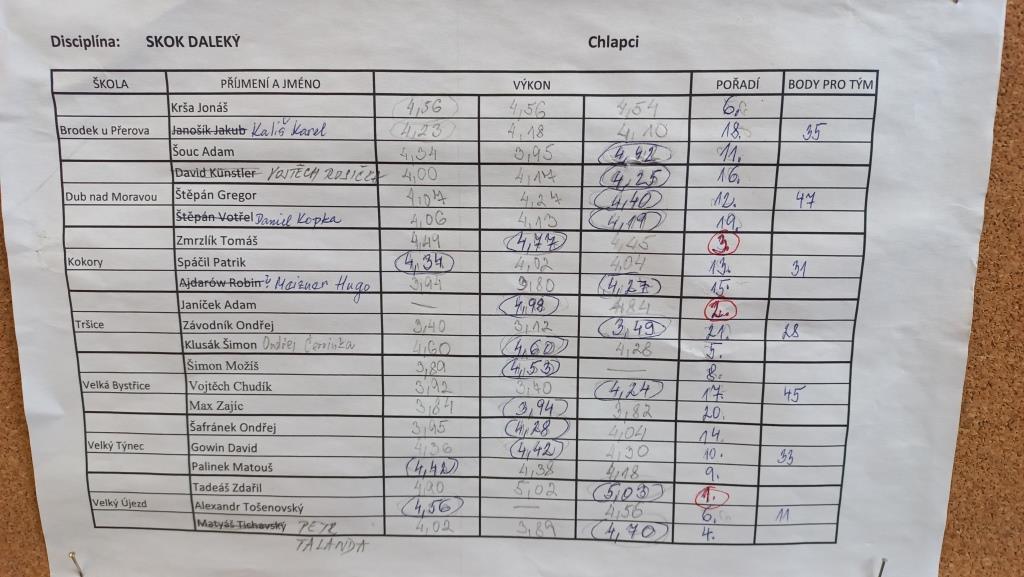 Disciplína: SKOK DALEKÝ Chlapci
ŠKOLA PŘÍJMENÍ A JMÉNO VÝKON POŘADÍ BODY PRO TÝM
Krša Jonáš 4,56 4,56 4,54 6.
Brodek u Přerova Janošík Jakub Kališ Karel 4,23 4,18 4,10 18. 35
Šouc Adam 4,34 3,95 4,42 11.
David Künstler VOJTĚCH 4,00 4,17 4,25 16.
Dub nad Moravou Štěpán Gregor 4,07 4,27 4,40 12. 47
Štěpán Votřel Daniel Kopka 4,06 4,13 4,19 19.
Zmrzlík Tomáš 4,49 4,77 4,45 3.
Kokory Spáčil Patrik 4,37 4,02 4,04 13. 31
Ajdarów Robin Hugo 3,94 3,80 4,27 15.
Janíček Adam — 4,98 4,84 2.
Tršice Závodník Ondřej 3,40 3,12 3,49 21. 28
Klusák Šimon Ondřej 4,60 4,60 4,28 5.
Šimon Možíš 3,89 4,53 — 8.
Velká Bystřice Vojtěch Chudík 3,92 3,70 4,24 17. 45
Max Zajíc 3,84 3,94 3,82 20.
Šafránek Ondřej 3,95 4,28 4,04 14.
Velký Týnec Gowin David 4,36 4,42 4,30 10. 33
Palinek Matouš 4,42 4,38 4,18 9.
Tadeáš Zdařil 4,90 5,02 5,03 1.
Velký Újezd Alexandr Tošenovský 4,56 — 4,56 6. 11
Matyáš Tichavský PETR 4,02 3,89 4,70 4.
TALANDA